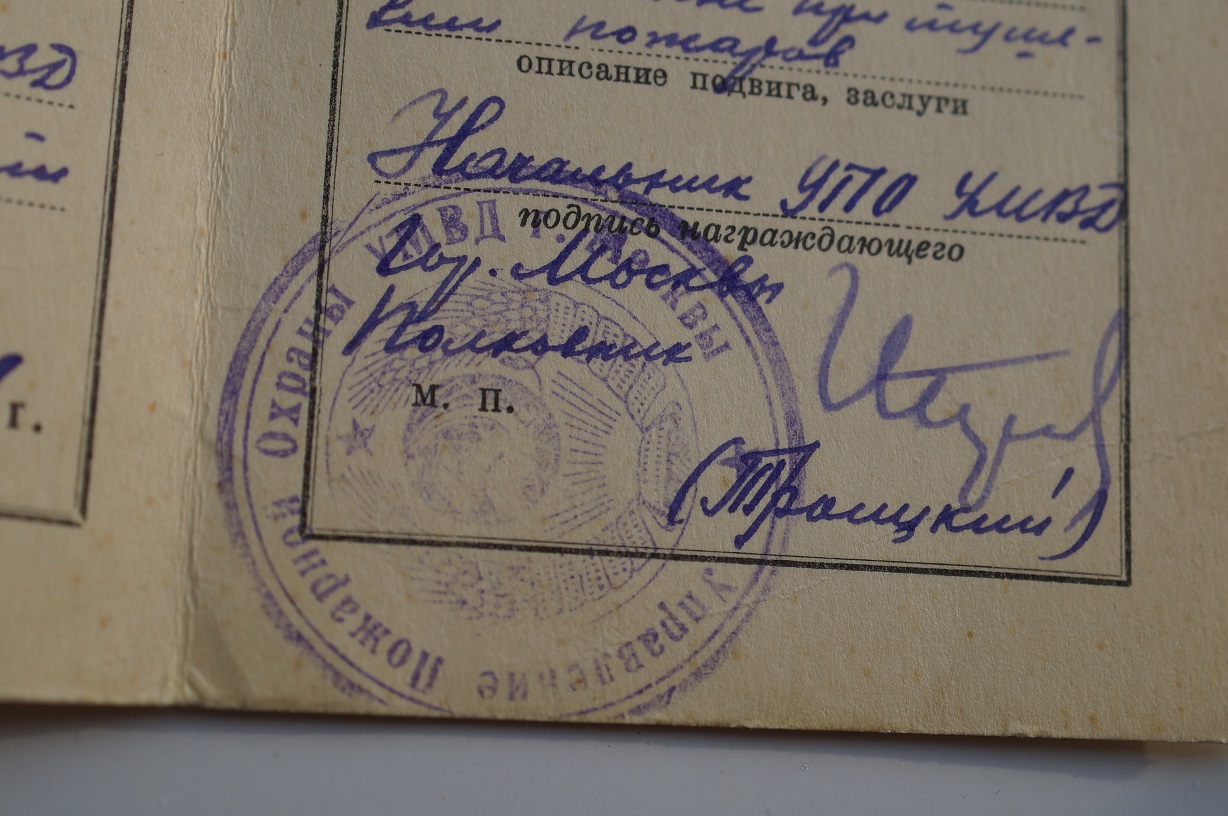 ВД
г.
при туше-
нии пожаров
описание подвига, заслуги
Начальник УПО УМВД
подпись награждающего
гор. Москвы
Полковник
м. п.
(Троицкий)
Управление Пожарной Охраны УМВД г. Москвы